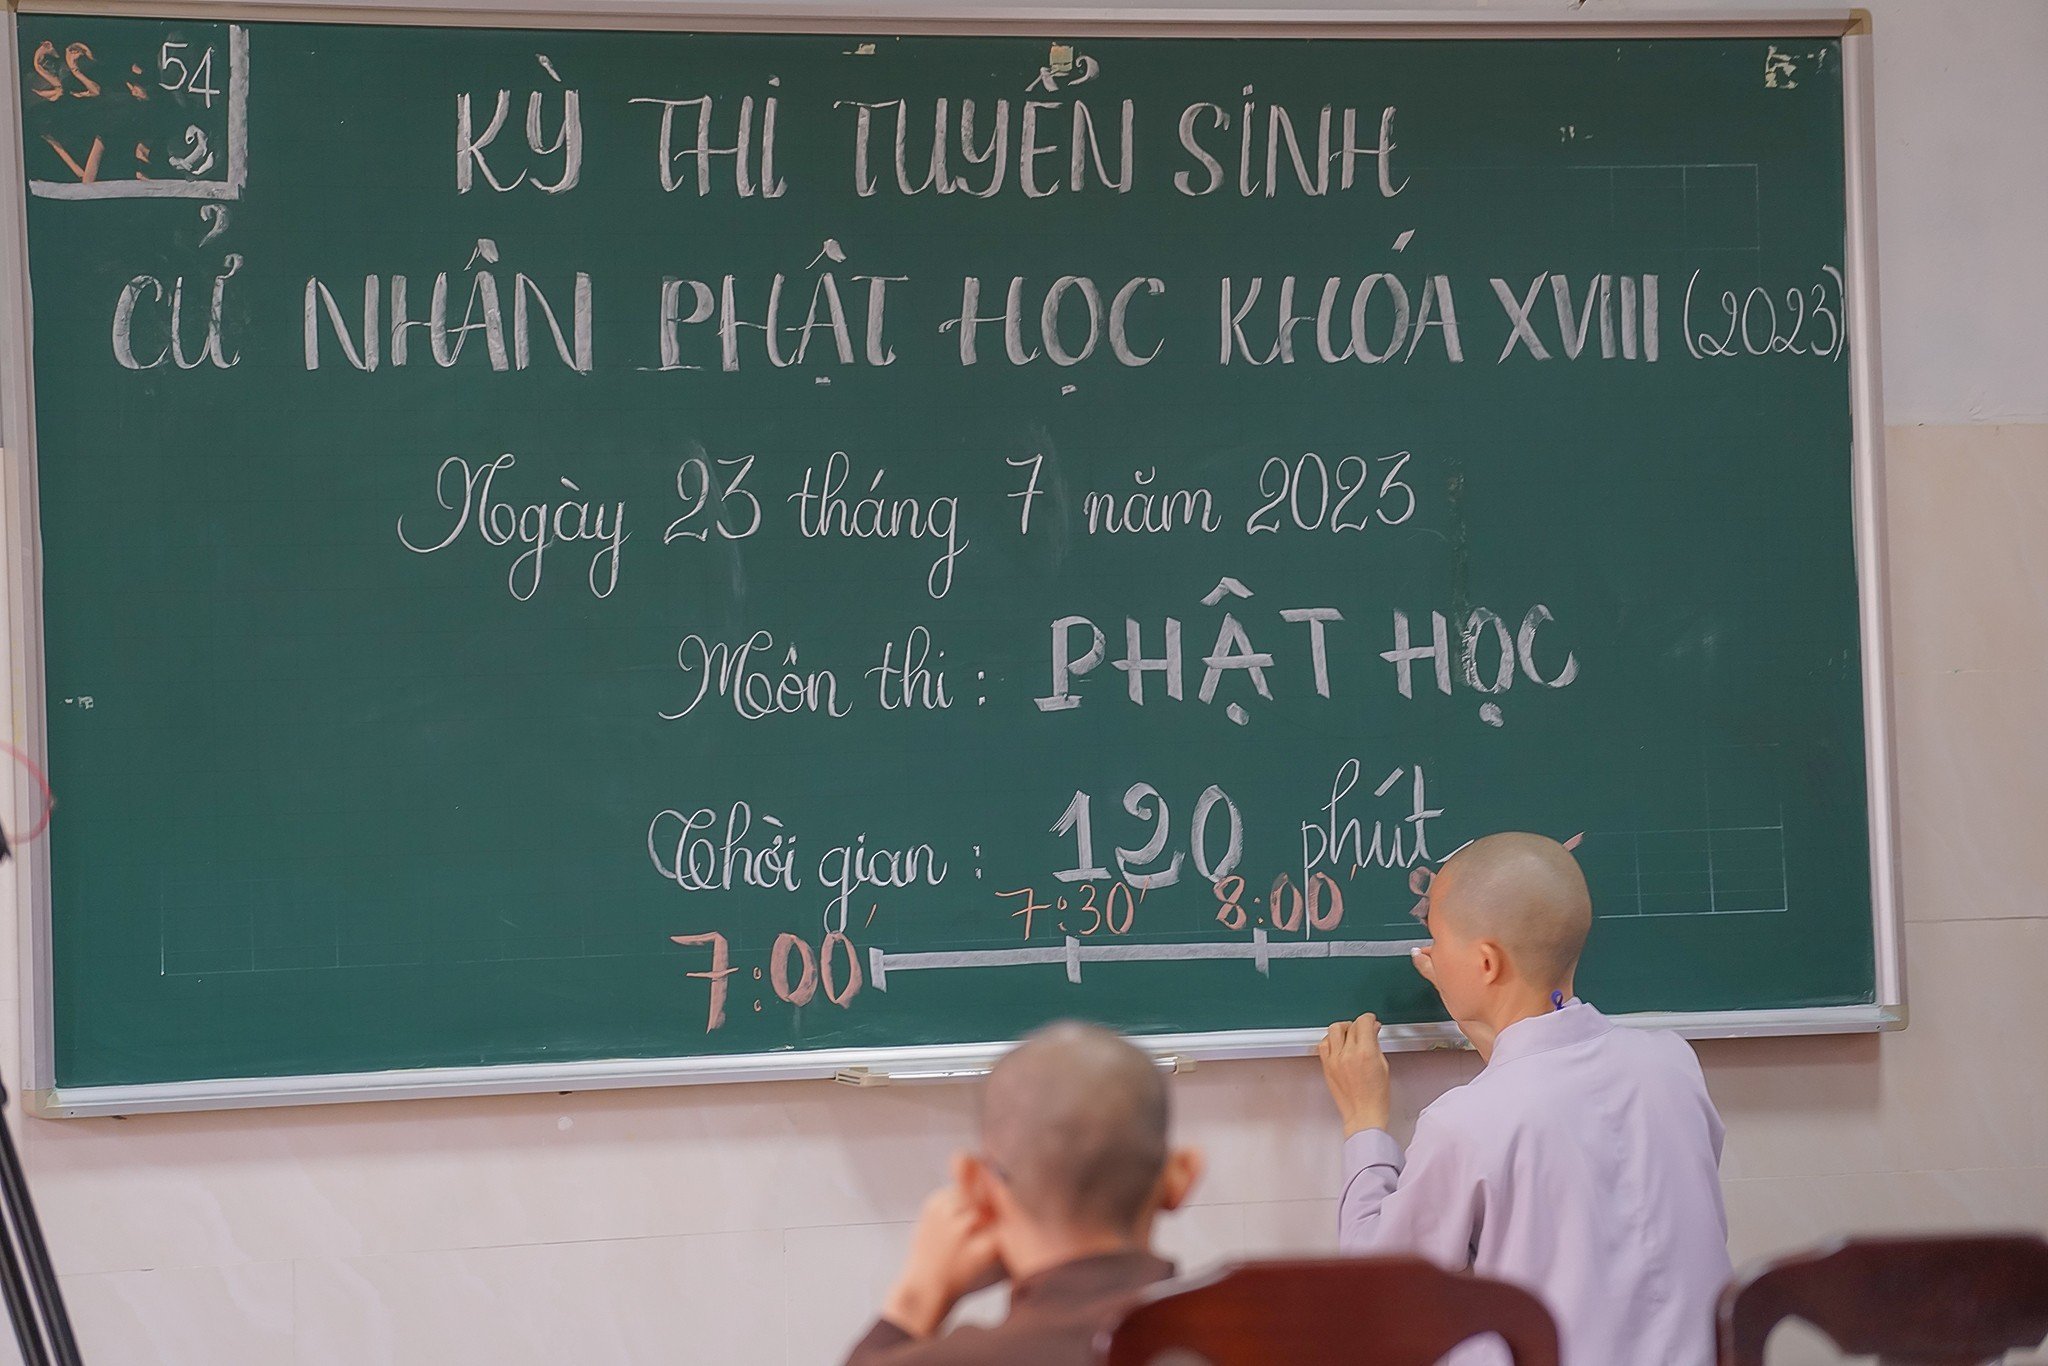 SS : 54
V : 2
KỲ THI TUYỂN SINH
CỬ NHÂN PHẬT HỌC KHÓA XVIII (2023)
Ngày 23 tháng 7 năm 2023
Môn thi : PHẬT HỌC
Thời gian : 120 phút
7:00' 7:30' 8:00'